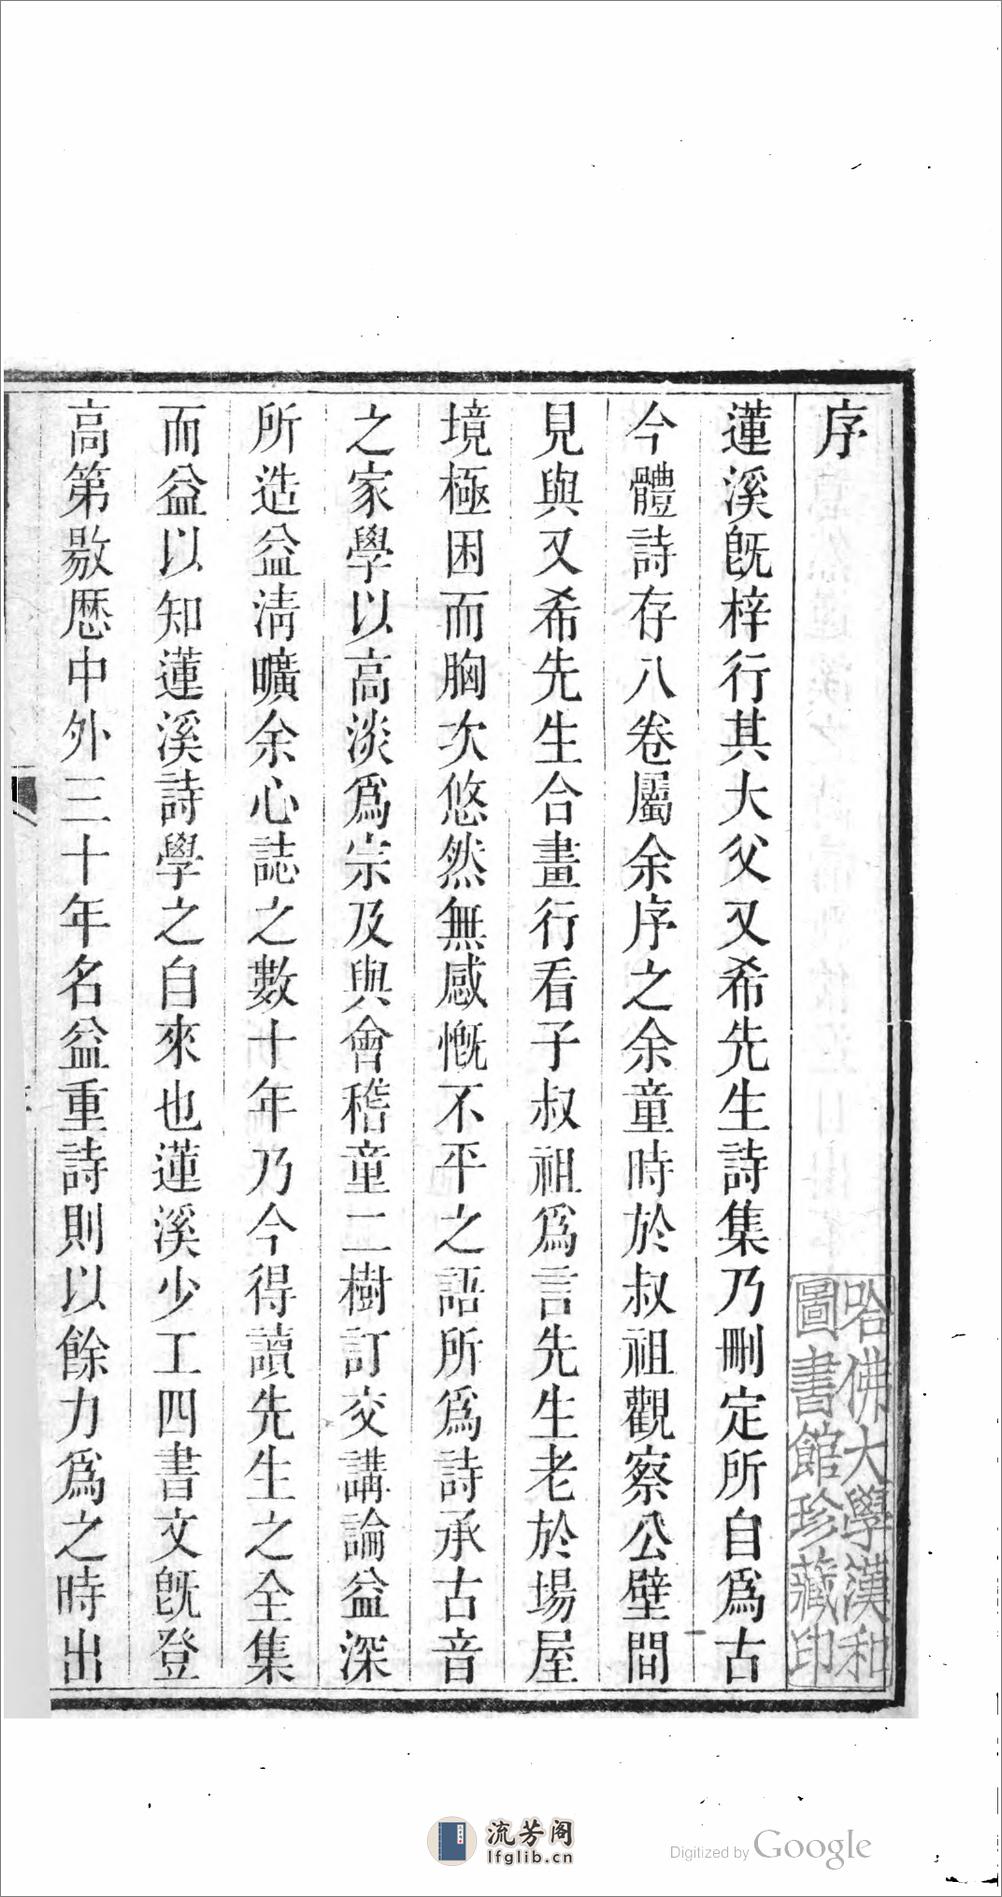 序
蓮溪既梓行其大父又希先生詩集乃刪定所自爲古
今體詩存八卷屬余序之余童時於叔祖觀察公壁間
見與又希先生合畫行看子叔祖爲言先生老於場屋
境極困而胸次悠然無感慨不平之語所爲詩承古音
之家學以高淡爲宗及與會稽童二樹訂交講論益深
所造益淸曠余心誌之數十年乃今得讀先生之全集
而益以知蓮溪詩學之自來也蓮溪少工四書文旣登
高第敭歷中外三十年名益重詩則以餘力爲之時出
哈佛大學漢和
圖書館珍藏印
流芳阁
lfglib.cn
Digitized by Google